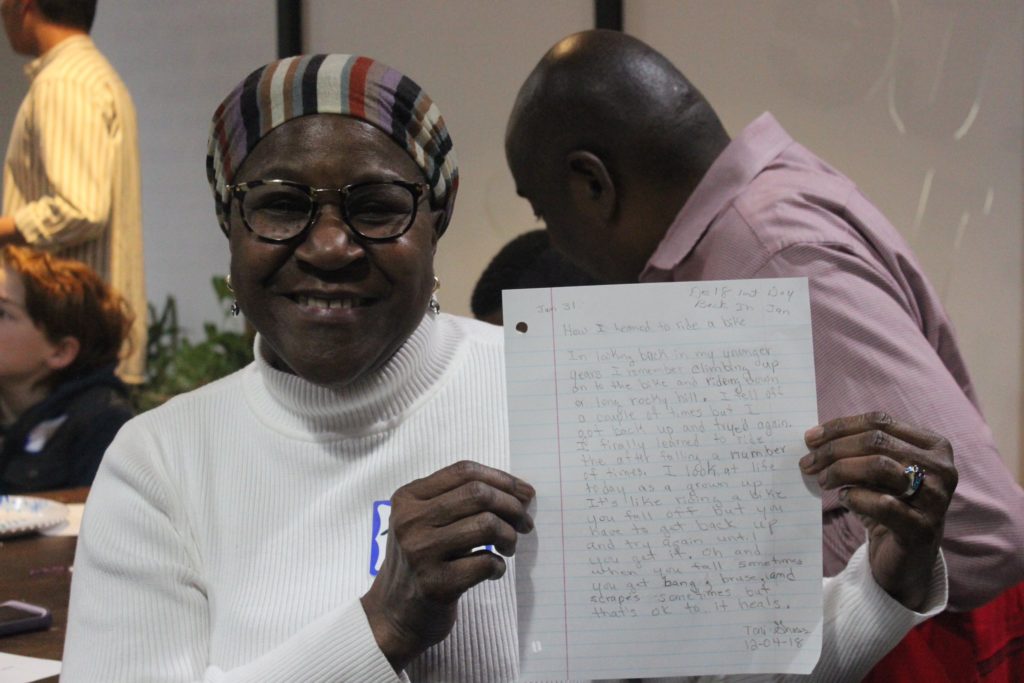 Jan 31
Dec 18 last Day
Back In Jan
How I learned to ride a bike
In looking back in my younger
years I remember climbing up
on to the bike and riding down
a long rocky hill. I fell off
a couple of times but I
got back up and tryed again.
I finally learned to ride
the after falling a number
of times. I look at life
today as a grown up
It's like riding a bike
you fall off but you
have to get back up
and try again until
you get it. Oh and
when you fall sometimes
you get bang, bruse, and
scrapes sometimes but
that's ok to it heals.
Toni
12-04-18